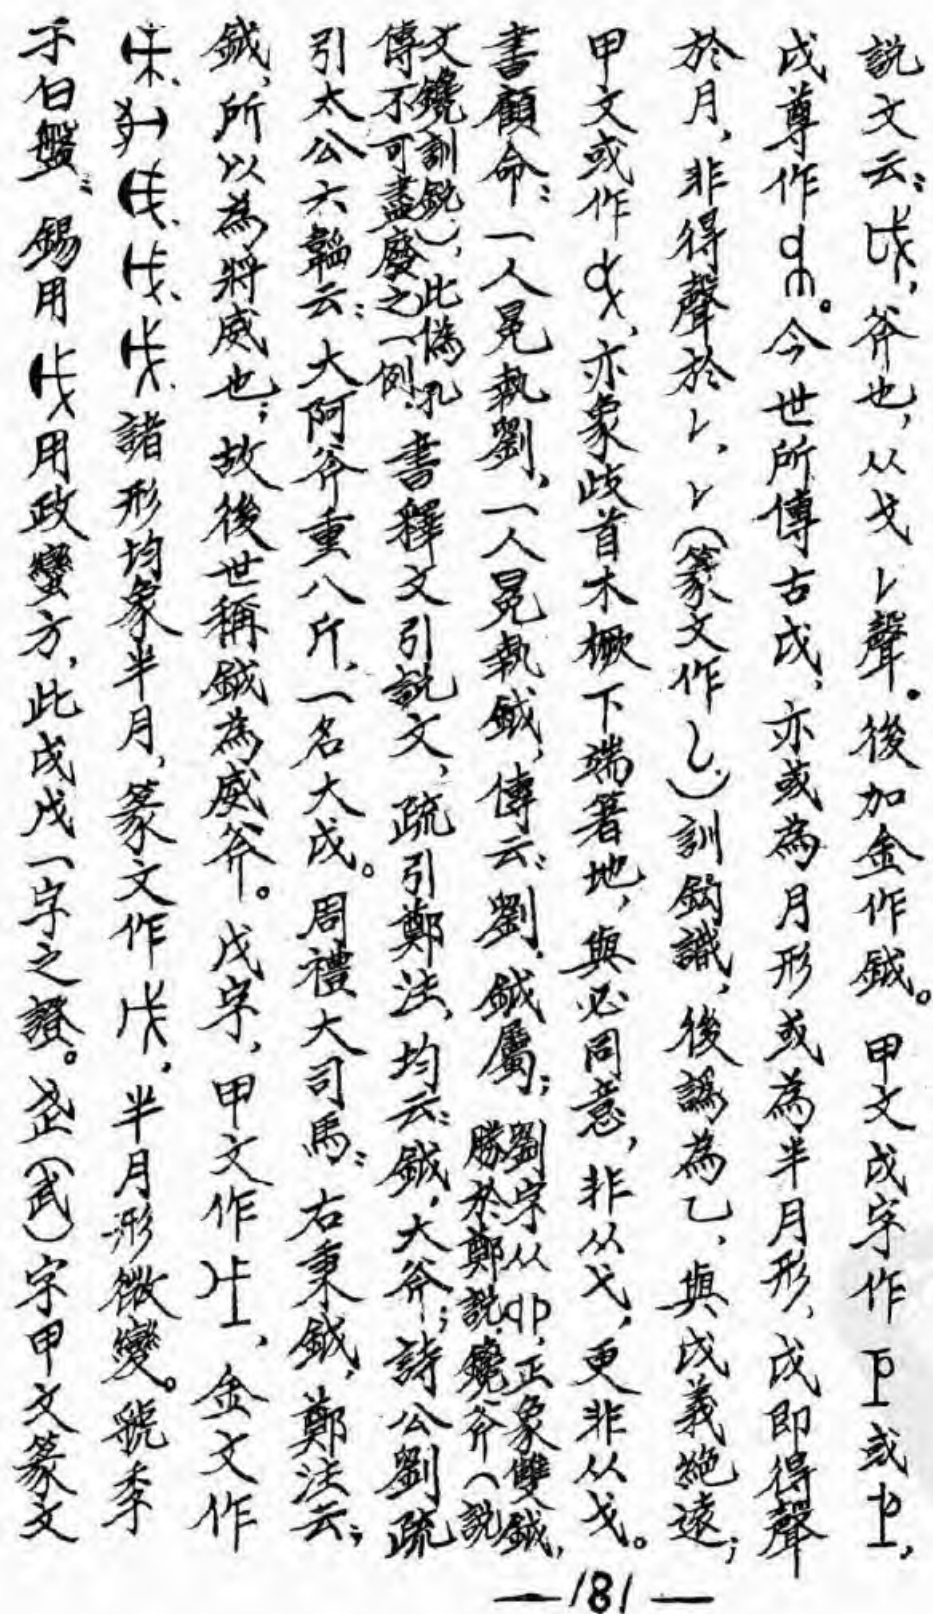 說文云:戉,斧也,从戈𠄌聲。後加金作鉞。甲文戉字作或,
戉尊作。今世所傳古戉,亦或為月形或為半月形,戉即得聲
於月,非得聲於𠄌,𠄌(篆文作)訓鉤識,後譌為乙,與戉義絕遠;
甲文或作,亦象歧首木橛下端著地,與必同意,非从弋,更非从戈。
書顧命:一人冕執劉,一人冕執鉞,傳云:劉,鉞屬;劉字从,正象雙鉞,勝於鄭說鑱斧(說
文鑱訓銳),此偽孔傳不可盡廢之一例。書釋文引說文,疏引鄭注,均云:鉞,大斧;詩公劉疏
引太公六韜云:大阿斧重八斤,一名大戉。周禮大司馬:右秉鉞,鄭注云:
鉞,所以為將威也;故後世稱鉞為威斧。戊字,甲文作,金文作
諸形均象半月,篆文作戊,半月形微變。虢季
子白盤:錫用戉用政蠻方,此戉戊一字之證。(武)字甲文篆文
—181—